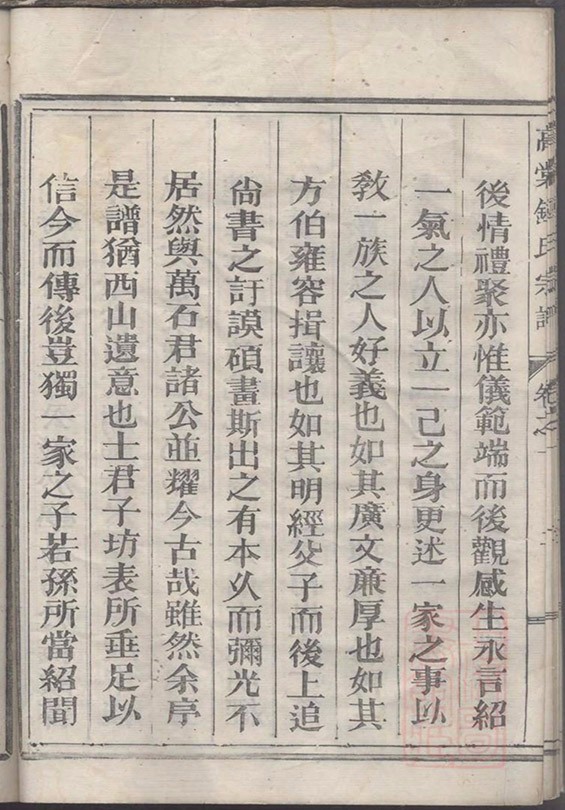 後情禮聚亦惟儀範端而後觀感生永言紹
一氣之人以立一己之身更述一家之事以
敎一族之人好義也如其廣文亷厚也如其
方伯雍容揖讓也如其明經父子而後上追
尙書之訏謨碩畫斯出之有本乆而彌光不
居然與萬石君諸公並耀今古哉雖然余序
是譜猶西山遺意也士君子坊表所垂足以
信今而傳後豈獨一家之子若孫所當紹聞